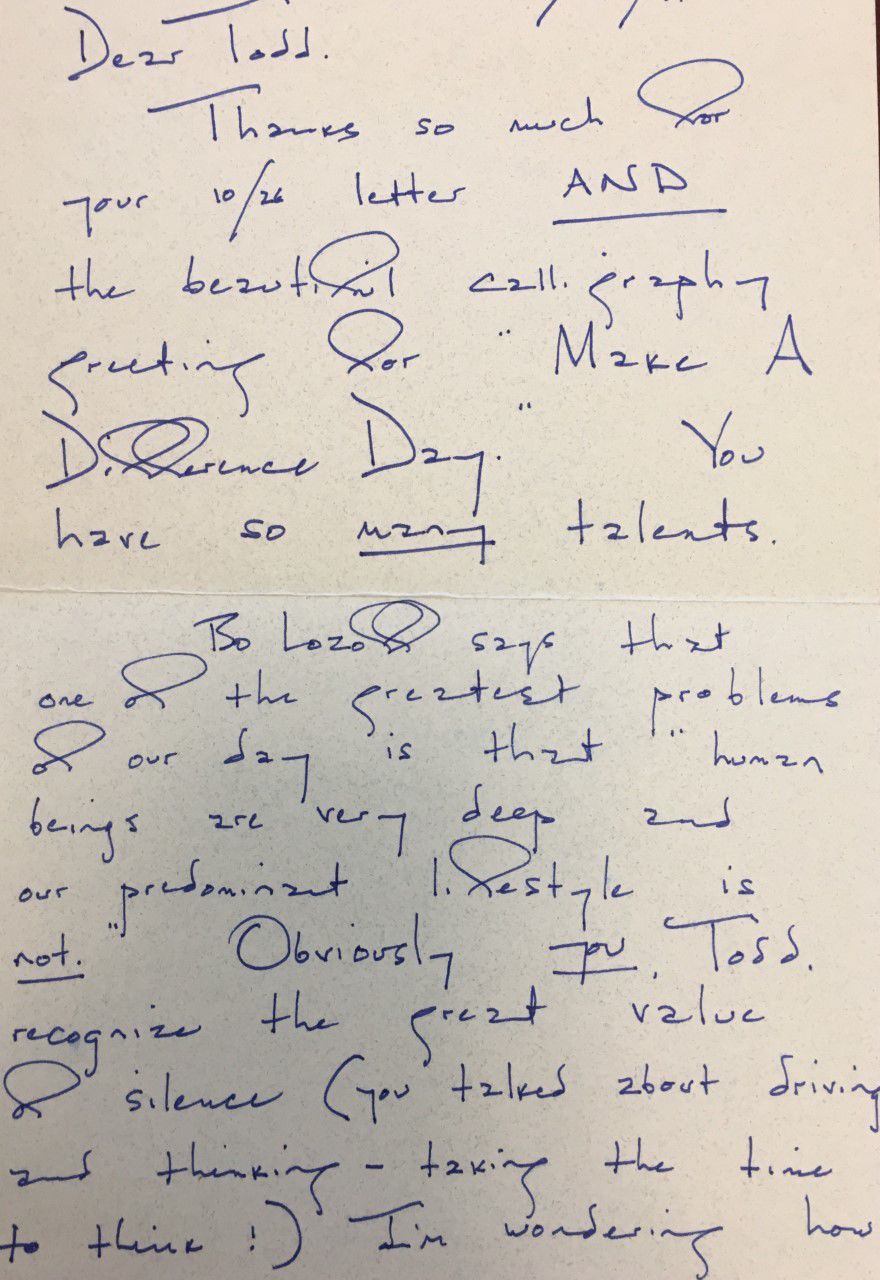 Dear Todd.
Thanks so much for
your 10/26 letter AND
the beautiful calligraphy
greeting for "Make A
Difference Day." You
have so many talents.
Bo Lozoff says that
one of the greatest problems
of our day is that "human
beings are very deep and
our predominant lifestyle is
not." Obviously you, Todd,
recognize the great value
of silence (you talked about driving
and thinking - taking the time
to think!) I'm wondering how